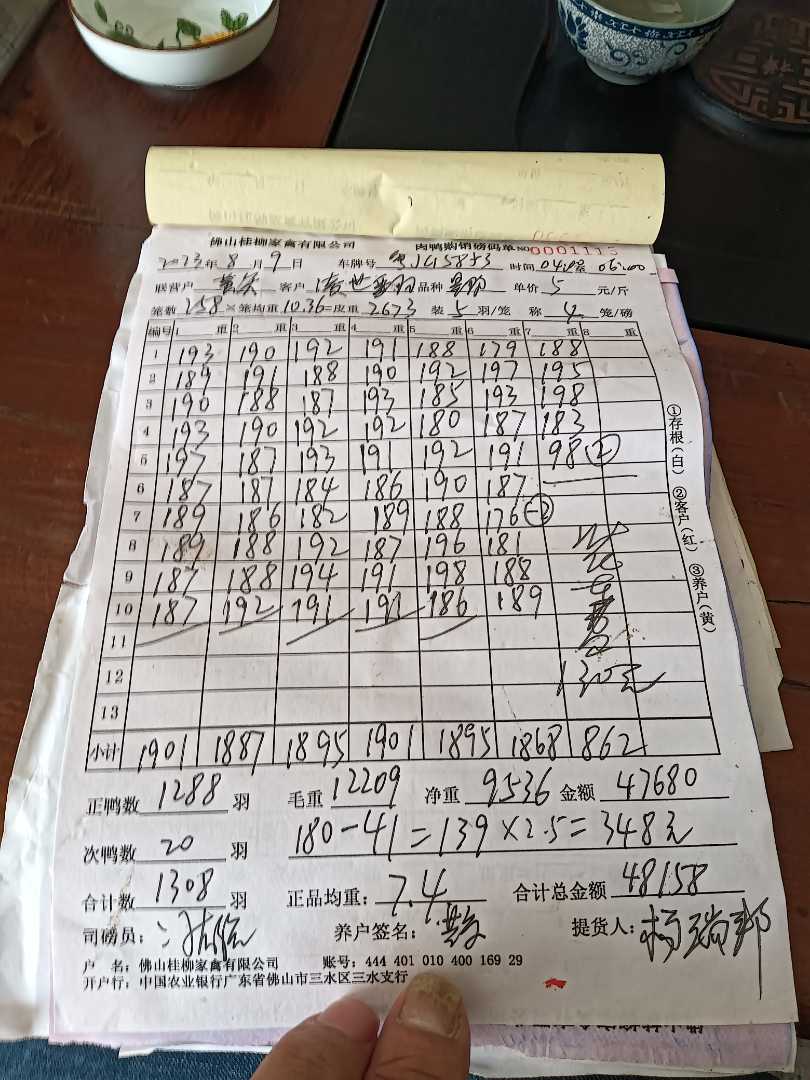 佛山桂柳家禽有限公司 肉鸭购销磅码单 NO 0001115
2023年8月9日 车牌号 时间
联营户 客户 品种 单价 5 元/斤
笼数 258 × 笼均重 10.36 = 皮重 2673 装 5 羽/笼 称 4 笼/磅
编号 1 重 2 重 3 重 4 重 5 重 6 重 7 重 8 重
1 193 190 192 191 188 179 188
2 189 191 188 190 192 197 195
3 190 188 187 193 185 193 198
4 193 190 192 192 180 187 183
5 197 187 193 191 192 191 98 ②
6 187 187 184 186 190 187
7 189 186 182 189 188 176
8 189 188 192 187 196 181
9 187 188 194 191 198 188
10 187 192 191 191 186 189
11
12 1310元
13
小计 1901 1887 1895 1901 1895 1868 862
正鸭数 1288 羽 毛重 12209 净重 9536 金额 47680
次鸭数 20 羽 180-41=139×2.5=348元
合计数 1308 羽 正品均重: 7.4 合计总金额 48158
司磅员: 养户签名: 提货人: 杨瑞邦
户 名: 佛山桂柳家禽有限公司 账号: 444 401 010 400 169 29
开户行: 中国农业银行广东省佛山市三水区三水支行
①存根(白) ②客户(红) ③养户(黄)